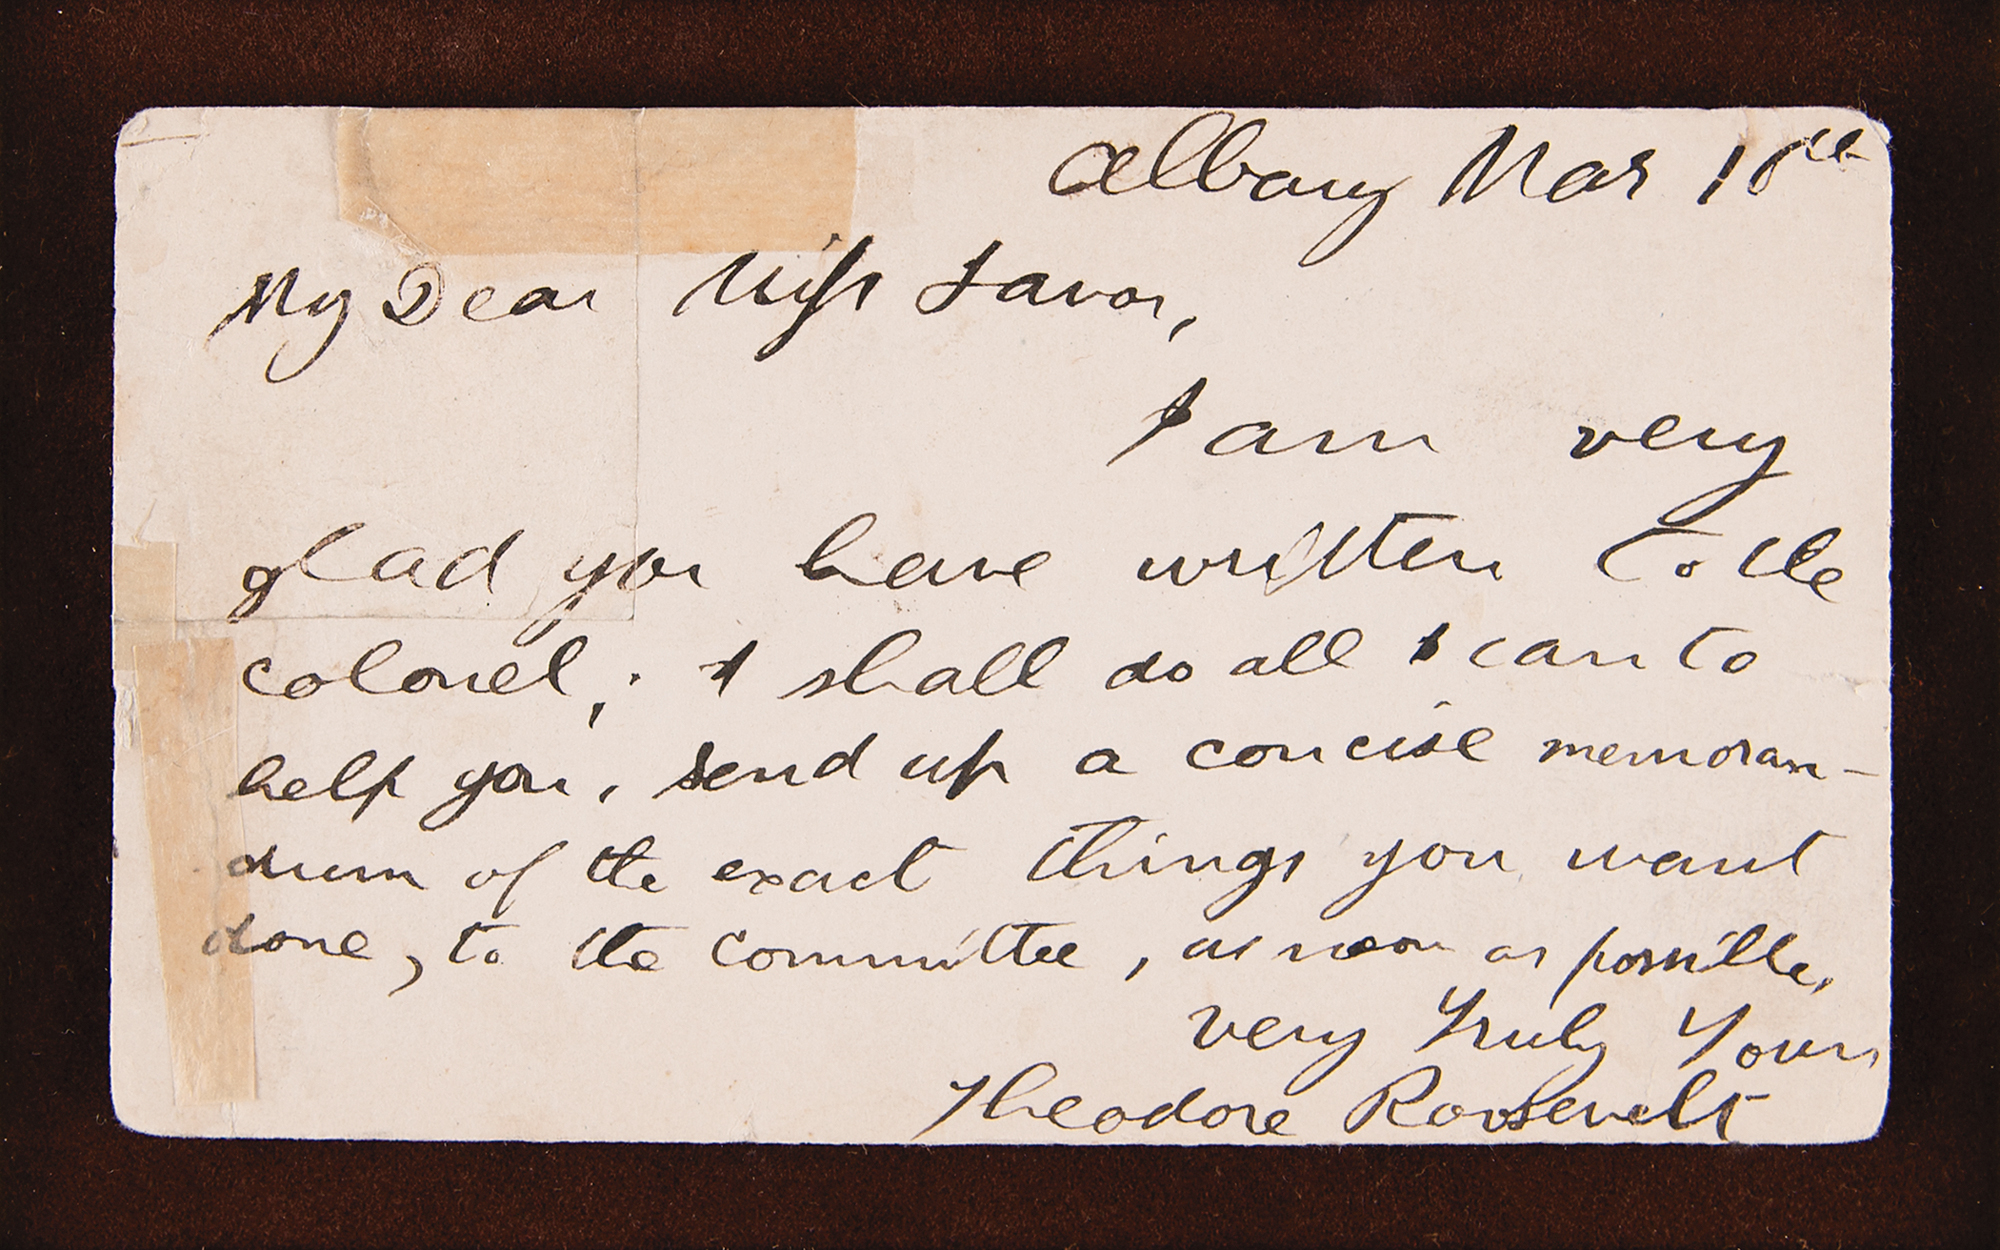 Albany Mar 10th
My Dear Miss Savor,
I am very
glad you have written to the
colonel; I shall do all I can to
help you, send up a concise memoran-
dum of the exact things you want
done, to the committee, as soon as possible,
very Truly Yours
Theodore Roosevelt